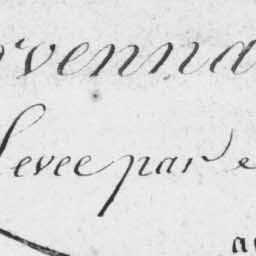 rvenna
Levee par e
a